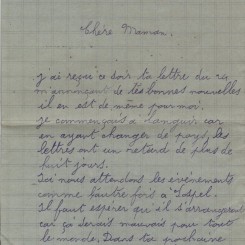 Chère Maman.
j'ai reçu ce soir ta lettre du 24
m'annonçant de tes bonnes nouvelles
il en est de même pour moi.
je commençais à languir car
en ayant changer de pays, les
lettres ont un retard de plus de
huit jours.
Ici nous attendons les événements
comme l'autre fois à
Il faut espérer que il s'arrangeront
car ça serais mauvais pour tout
le monde. Dans ta prochaine